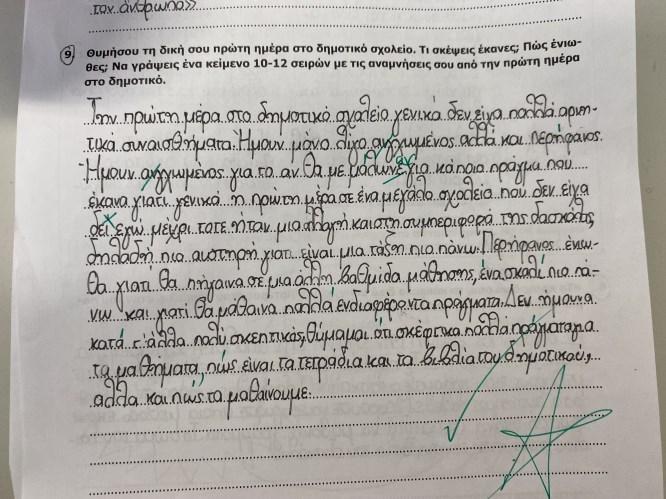 τον άνθρωπο>>
9. Θυμήσου τη δική σου πρώτη ημέρα στο δημοτικό σχολείο. Τι σκέψεις έκανες; Πώς ένιω-
θες; Να γράψεις ένα κείμενο 10-12 σειρών με τις αναμνήσεις σου από την πρώτη ημέρα
στο δημοτικό.
Την πρώτη μέρα στο δημοτικό σχολείο γενικά δεν είχα πολλά αρνη-
τικά συναισθήματα. Ήμουν μονο λίγο αγχωμένος αλλά και περήφανος.
Ήμουν αγχωμένος για το αν θα με μάλωναν για κάποιο πράγμα που
έκανα γιατί γενικά η πρώτη μέρα σε ένα μεγάλο σχολείο που δεν είχα
δει εγώ μέχρι τότε ήταν μια αλλαγή και στη συμπεριφορά της δασκάλας,
δηλαδή πιο αυστηρή γιατί είναι μια τάξη πιο πάνω. Περήφανος ένιω-
θα γιατί θα πήγαινα σε μια άλλη βαθμίδα μάθησης, ένα σκαλί πιο πά-
νω και γιατί θα μάθαινα πολλά ενδιαφέροντα πράγματα. Δεν ήμουνα
κατά τ' άλλα πολύ σκεπτικός, θυμάμαι ότι σκέφτηκα πολλά πράγματα για
τα μαθήματα, πώς είναι τα τετράδια και τα βιβλία του δημοτικού,
αλλά και πώς τα μαθαίνουμε.